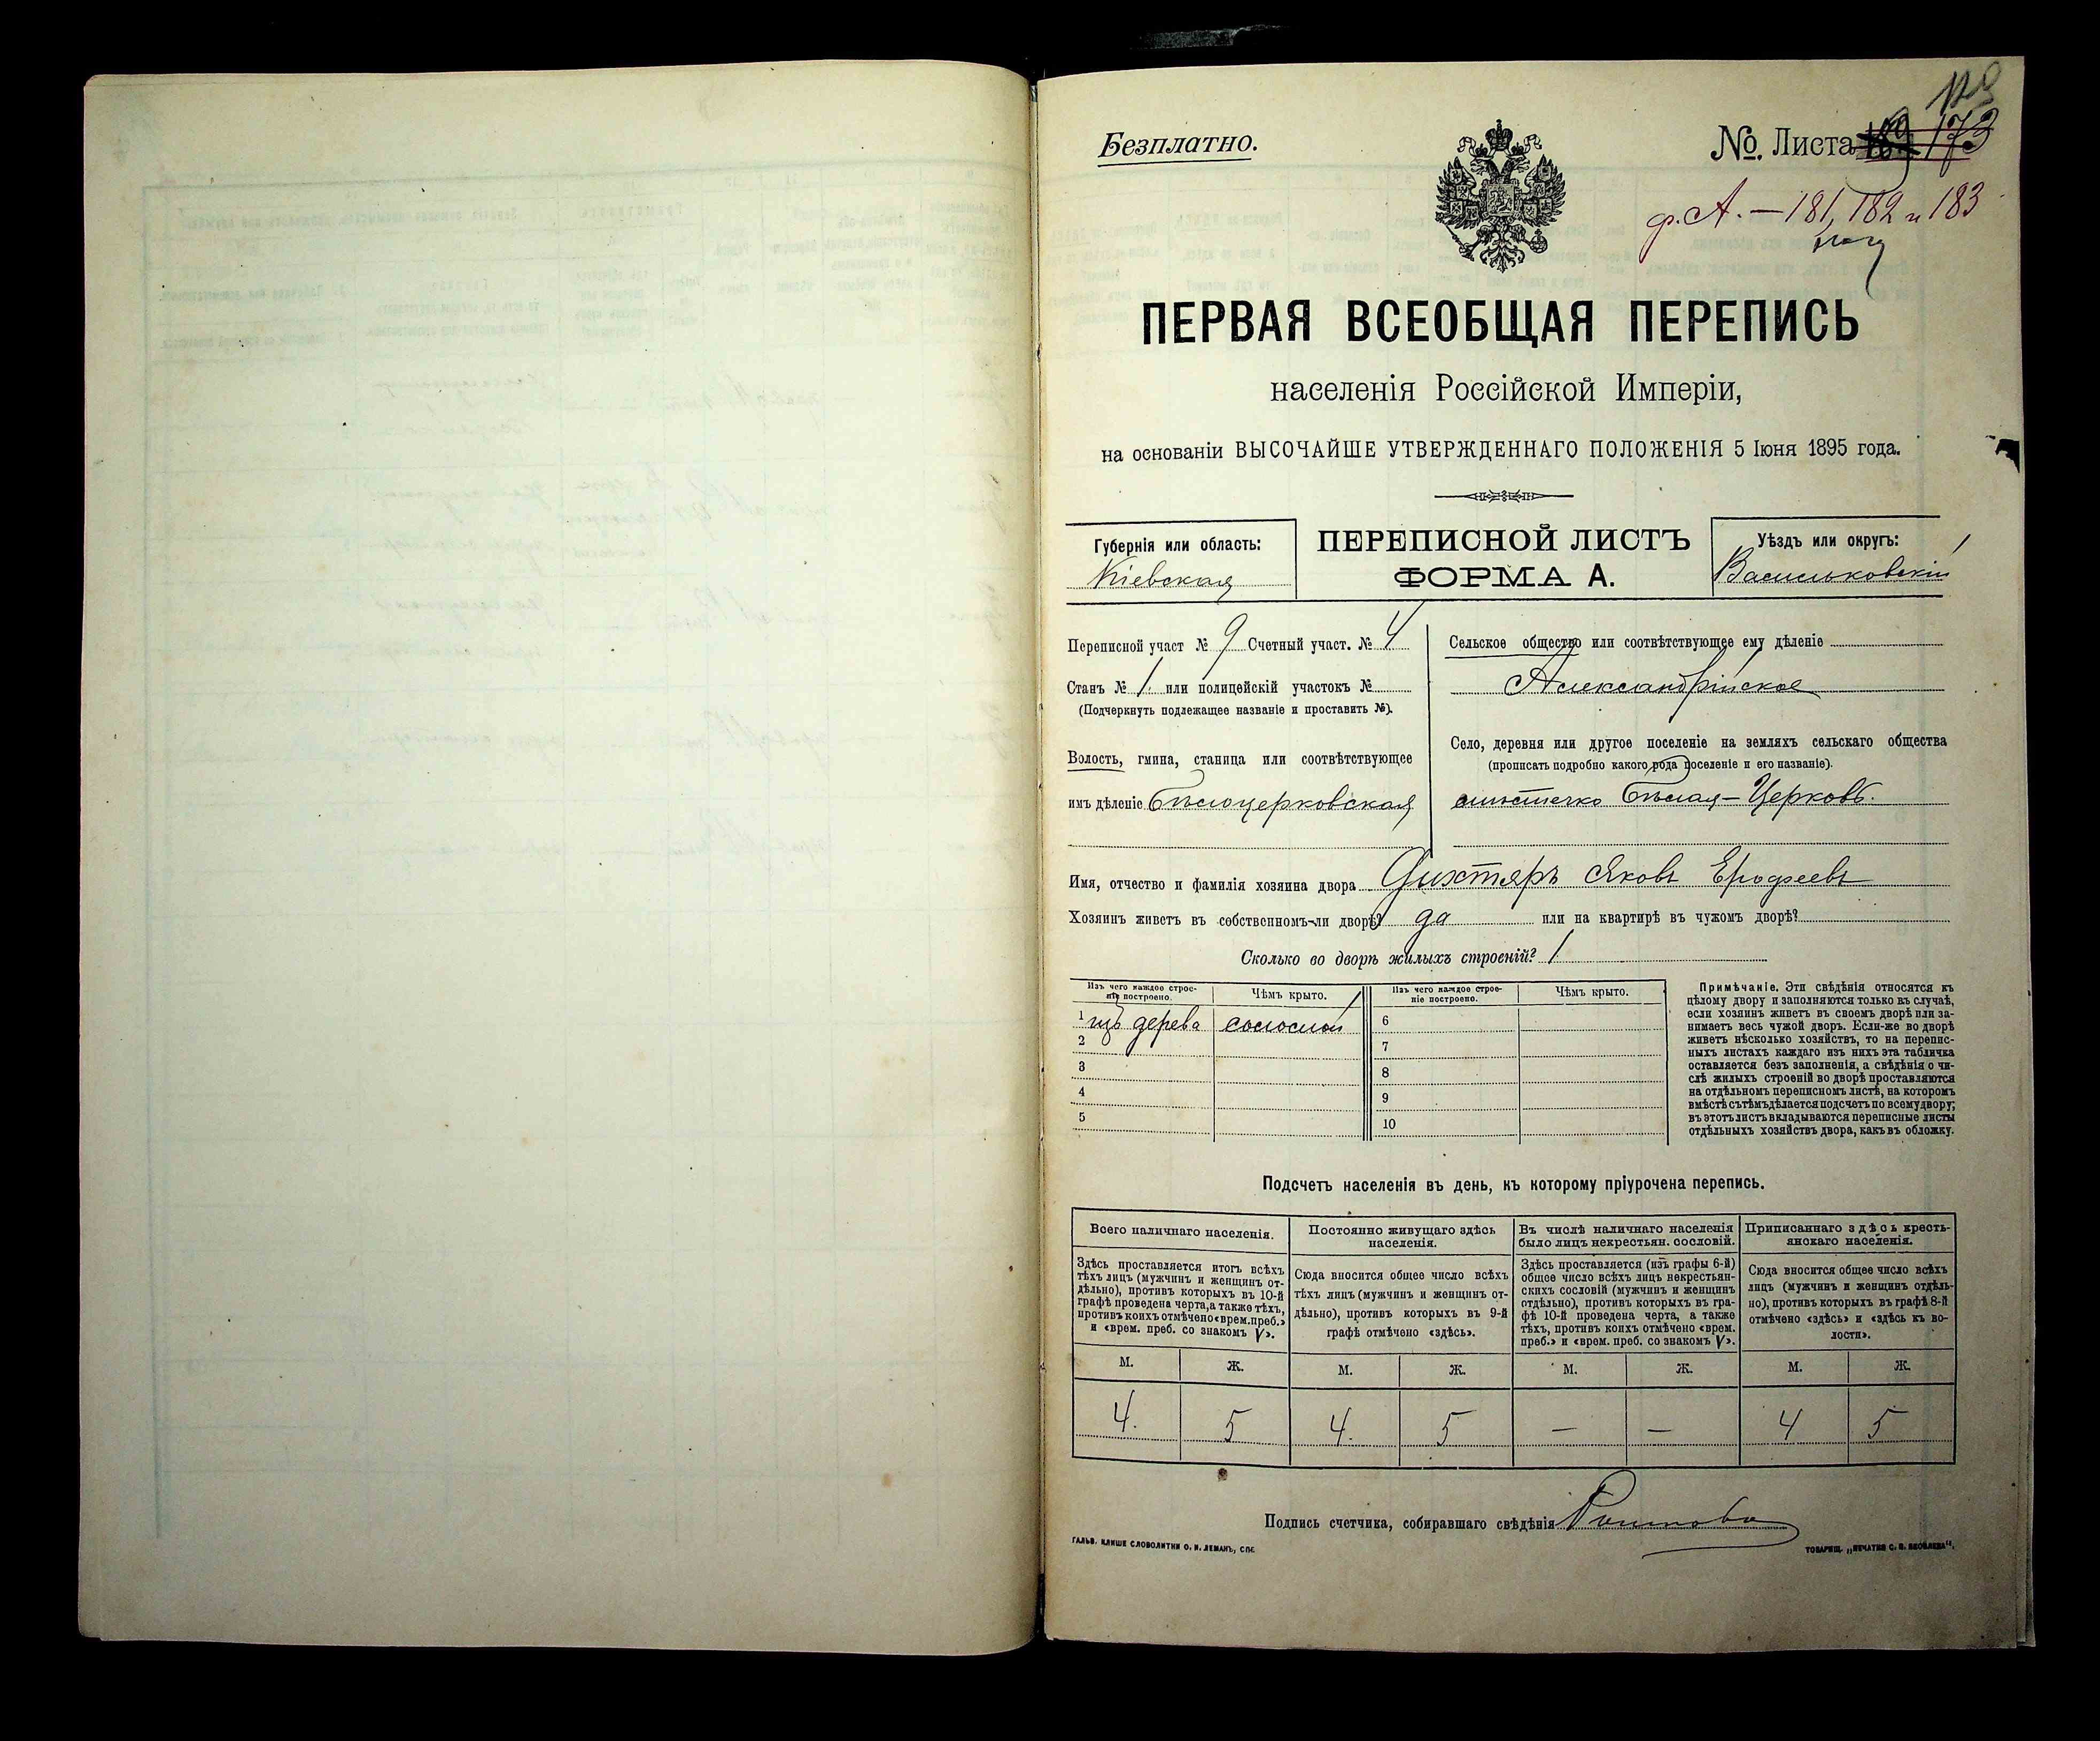 Безплатно.
№. Листа 173
ф. А. — 181, 182 и 183
ПЕРВАЯ ВСЕОБЩАЯ ПЕРЕПИСЬ
населенія Россійской Имперіи,
на основаніи ВЫСОЧАЙШЕ УТВЕРЖДЕННАГО ПОЛОЖЕНІЯ 5 Іюня 1895 года.
Губернія или область:
Кіевская
ПЕРЕПИСНОЙ ЛИСТЪ
ФОРМА А.
Уѣздъ или округъ:
Васильковскій
Переписной участ № 9 Счетный участ. № 4
Станъ № 1. или полицейскій участокъ №
(Подчеркнуть подлежащее названіе и проставить №).
Волость, гмина, станица или соотвѣтствующее
имъ дѣленіе Бѣлоцерковская
Сельское общество или соотвѣтствующее ему дѣленіе
Александрійское
Село, деревня или другое поселеніе на земляхъ сельскаго общества
(прописать подробно какого рода поселеніе и его названіе).
мѣстечко Бѣлая-Церковь.
Имя, отчество и фамилія хозяина двора Дихтярь Яковъ Ерофеевъ
Хозяинъ живетъ въ собственномъ-ли дворѣ? да или на квартирѣ въ чужомъ дворѣ?
Сколько во дворѣ жилыхъ строеній? 1
Изъ чего каждое строе-
ніе построено.
Чѣмъ крыто.
Изъ чего каждое строе-
ніе построено.
Чѣмъ крыто.
1 изъ дерева соломой 6
2 7
3 8
4 9
5 10
Примѣчаніе. Эти свѣдѣнія относятся къ
цѣлому двору и заполняются только въ случаѣ,
если хозяинъ живетъ въ своемъ дворѣ или за-
нимаетъ весь чужой дворъ. Если-же во дворѣ
живетъ нѣсколько хозяйствъ, то на перепис-
ныхъ листахъ каждаго изъ нихъ эта табличка
оставляется безъ заполненія, а свѣдѣнія о чи-
слѣ жилыхъ строеній во дворѣ проставляются
на отдѣльномъ переписномъ листѣ, на которомъ
вмѣстѣ съ тѣмъ дѣлается подсчетъ по всему двору;
въ этотъ листъ вкладываются переписные листы
отдѣльныхъ хозяйствъ двора, какъ въ обложку.
Подсчетъ населенія въ день, къ которому пріурочена перепись.
Всего наличнаго населенія.
Здѣсь проставляется итогъ всѣхъ
тѣхъ лицъ (мужчинъ и женщинъ от-
дѣльно), противъ которыхъ въ 10-й
графѣ проведена черта, а также тѣхъ,
противъ коихъ отмѣчено «врем. преб.»
и «врем. преб. со знакомъ V».
Постоянно живущаго здѣсь
населенія.
Сюда вносится общее число всѣхъ
тѣхъ лицъ (мужчинъ и женщинъ от-
дѣльно), противъ которыхъ въ 9-й
графѣ отмѣчено «здѣсь».
Въ числѣ наличнаго населенія
было лицъ некрестьян. сословій.
Здѣсь проставляется (изъ графы 6-й)
общее число всѣхъ лицъ некрестьян-
скихъ сословій (мужчинъ и женщинъ
отдѣльно), противъ которыхъ въ гра-
фѣ 10-й проведена черта, а также
тѣхъ, противъ коихъ отмѣчено «врем.
преб.» и «врем. преб. со знакомъ V».
Приписаннаго здѣсь кресть-
янскаго населенія.
Сюда вносится общее число всѣхъ
лицъ (мужчинъ и женщинъ отдѣль-
но), противъ которыхъ въ графѣ 8-й
отмѣчено «здѣсь» и «здѣсь къ во-
лости».
М. Ж. М. Ж. М. Ж. М. Ж.
4. 5 4. 5 — — 4 5
Подпись счетчика, собиравшаго свѣдѣнія
ГАЛЬВ. КЛИШЕ СЛОВОЛИТНИ О. И. ЛЕМАНЪ, СПБ.
ТОВАРИЩ. „ПЕЧАТНЯ С. П. ЯКОВЛЕВА“.